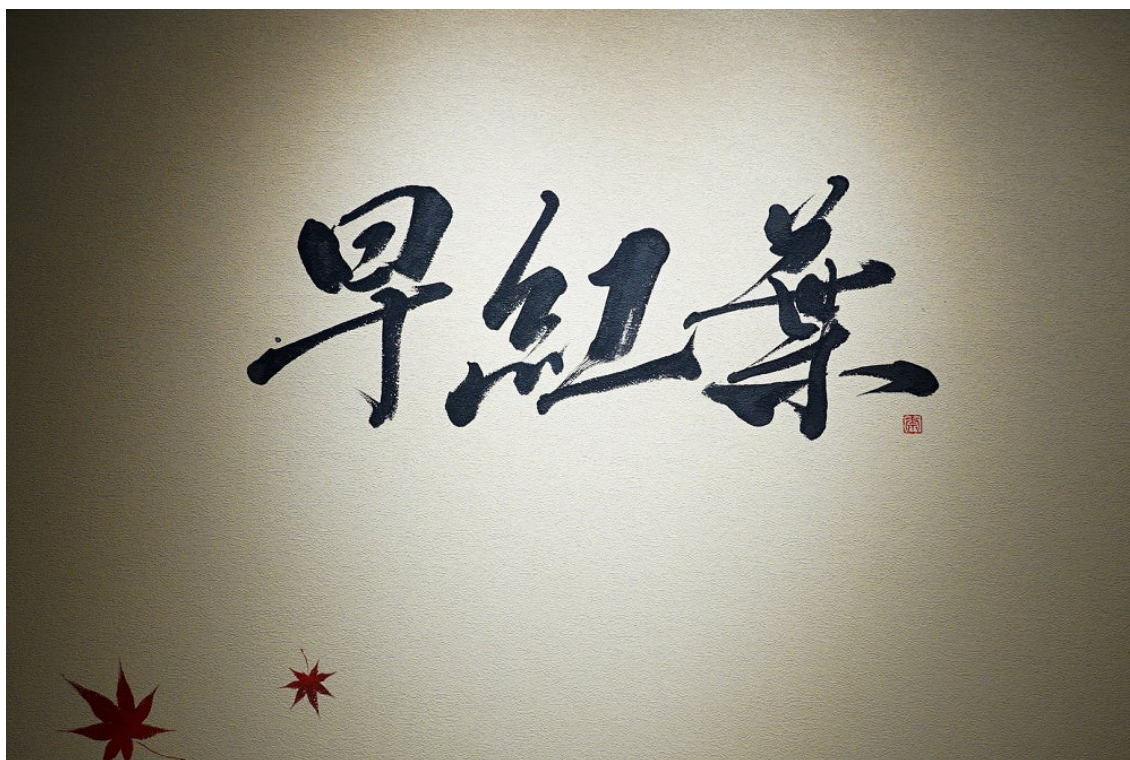 早紅葉